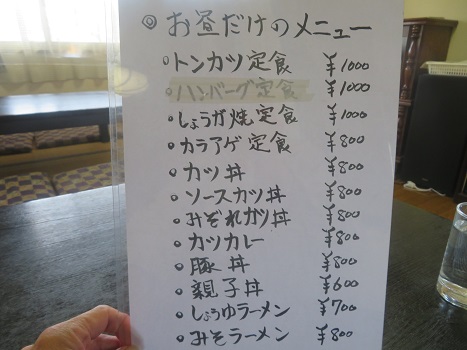 ◎お昼だけのメニュー
○トンカツ定食 ¥1000
○ハンバーグ定食 ¥1000
○しょうが焼定食 ¥1000
○カラアゲ定食 ¥800
○カツ丼 ¥800
○ソースカツ丼 ¥800
○みぞれカツ丼 ¥800
○カツカレー ¥800
○豚丼 ¥800
○親子丼 ¥600
○しょうゆラーメン ¥700
○みそラーメン ¥800